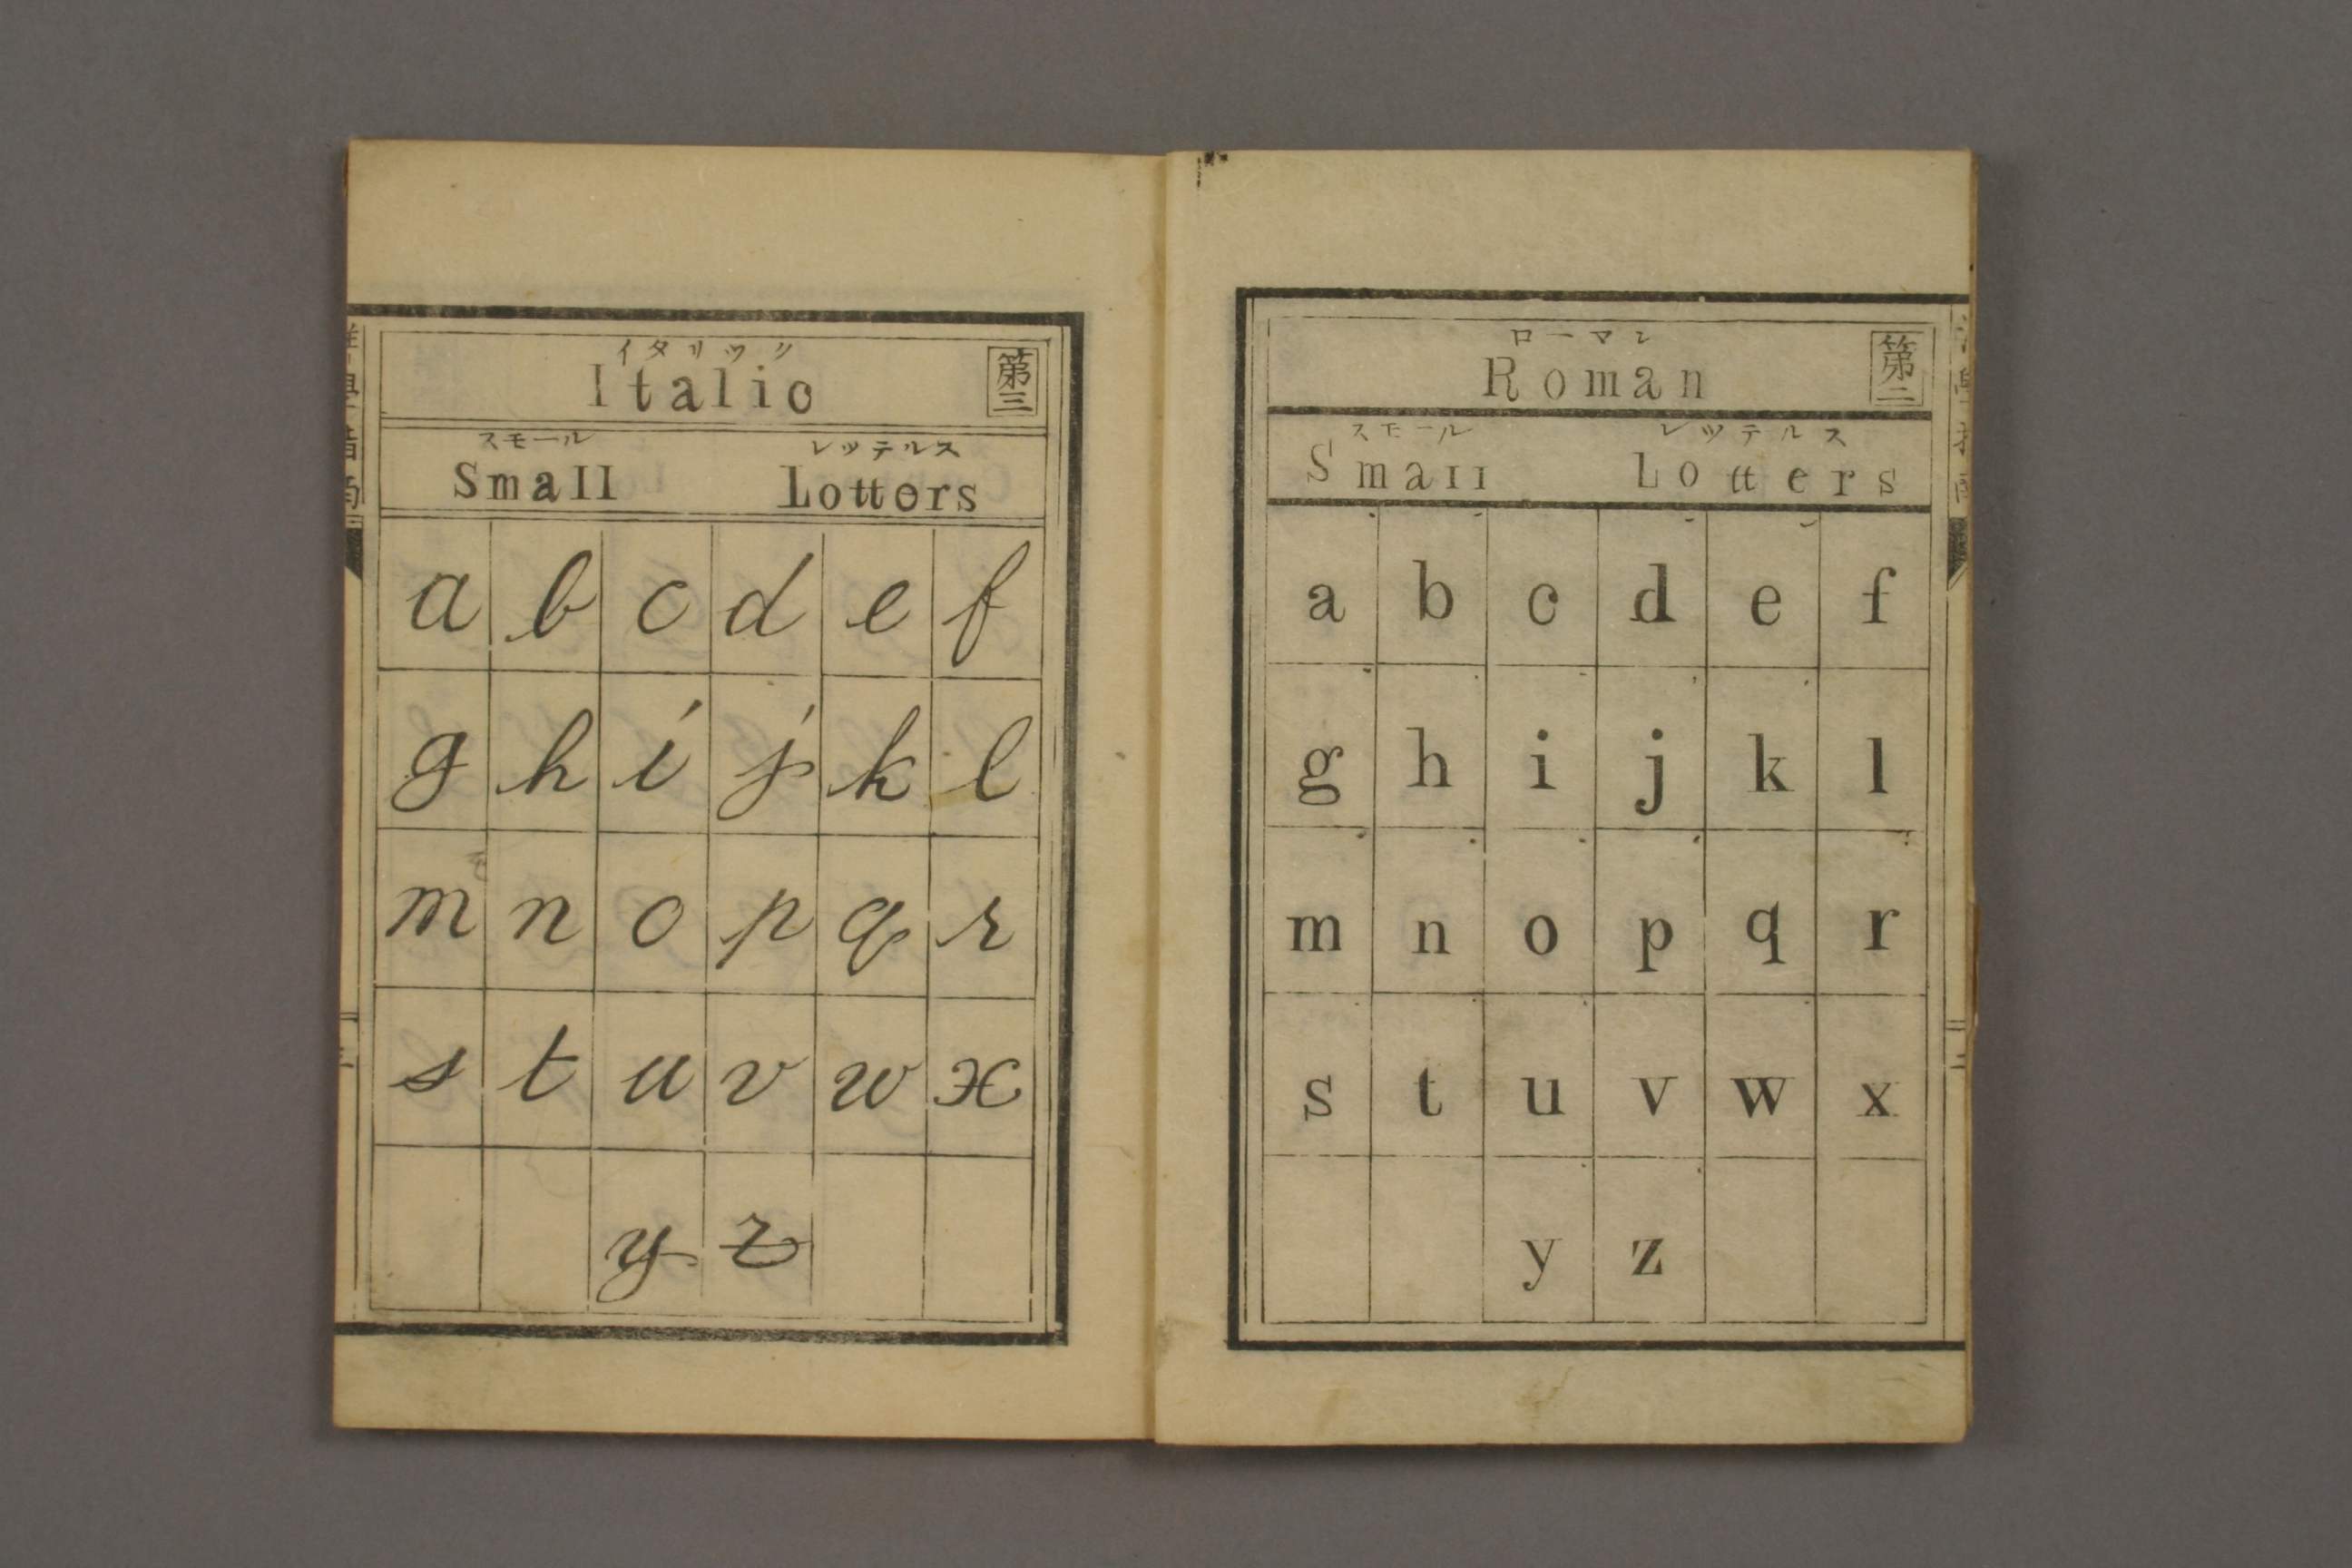 ローマン
Roman
第二
スモール レッテルス
Small Lotters
a b c d e f
g h i j k l
m n o p q r
s t u v w x
y z
イタリック
Italic
第三
スモール レッテルス
Small Lotters
a b c d e f
g h i j k l
m n o p q r
s t u v w x
y z